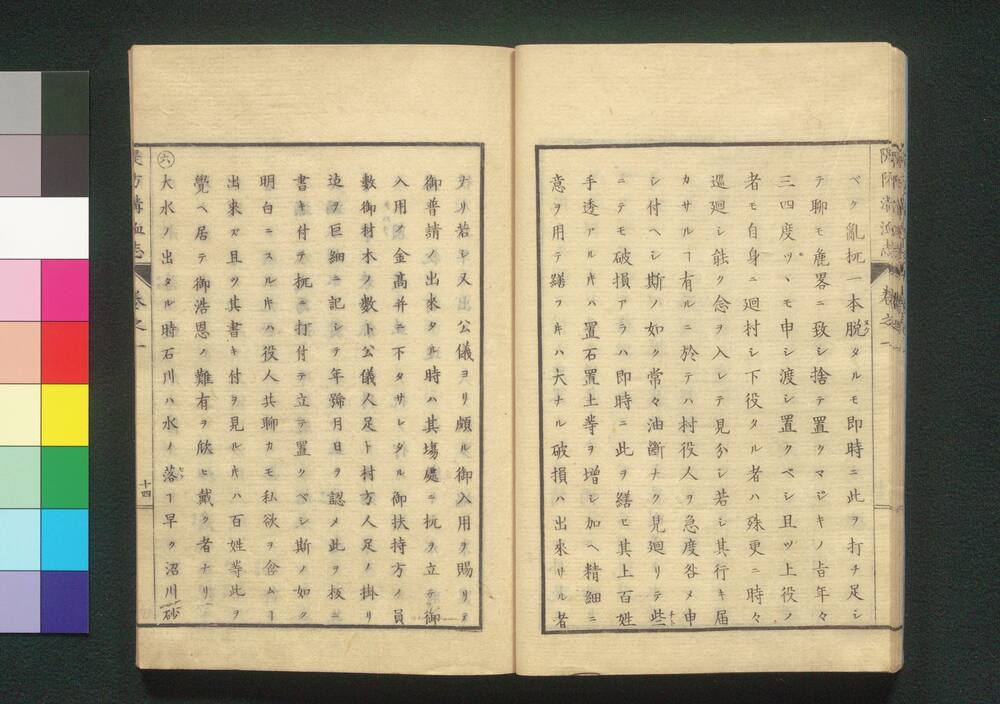 ベク亂杭一本脱タルモ即時ニ此ヲ打チ足シ
テ聊モ麁畧ニ致シ捨テ置クマジキノ旨年々
三四度ツヽモ申シ渡シ置クベシ且ツ上役ノ
者モ自身ニ廻村シ下役タル者ハ殊更ニ時々
巡廻シ能ク念ヲ入レテ見分シ若シ其行キ届
カサルヿ有ルニ於テハ村役人ヲ急度咎メ申
シ付ヘシ斯ノ如ク常々油斷ナク見廻リテ些
ニテモ破損アラハ即時ニ此ヲ繕ヒ其上百姓
手透アル片ハ置石置土等ヲ增シ加ヘ精細ニ
意ヲ用テ繕フ片ハ大ナル破損ハ出來リル者
ナリ若シ又出公儀ヨリ頗ル御入用ヲ賜リテ
御普請ノ出來タル時ハ其場處ニ杭ヲ立テ御
入用ノ金高并ニ下タサレタル御扶持方ノ員
數御材木ノ數ト公儀人足ト村方人足ノ掛リ
迠ヲ巨細ニ記シテ年號月日ヲ認メ此ヲ板ニ
書キ付テ杭ニ打付テ立テ置クベシ斯ノ如ク
明白ニスル片ハ役人共聊カモ私欲ヲ貪ムヿ
出來ズ且ツ其書キ付ヲ見ル片ハ百姓等此ヲ
覺ヘ居テ御浩恩ノ難有ヲ欣ヒ戴ク者ナリ
㊅大水ノ出タル時石川ハ水ノ落ヿ早ク沼川砂
卷之一
十四